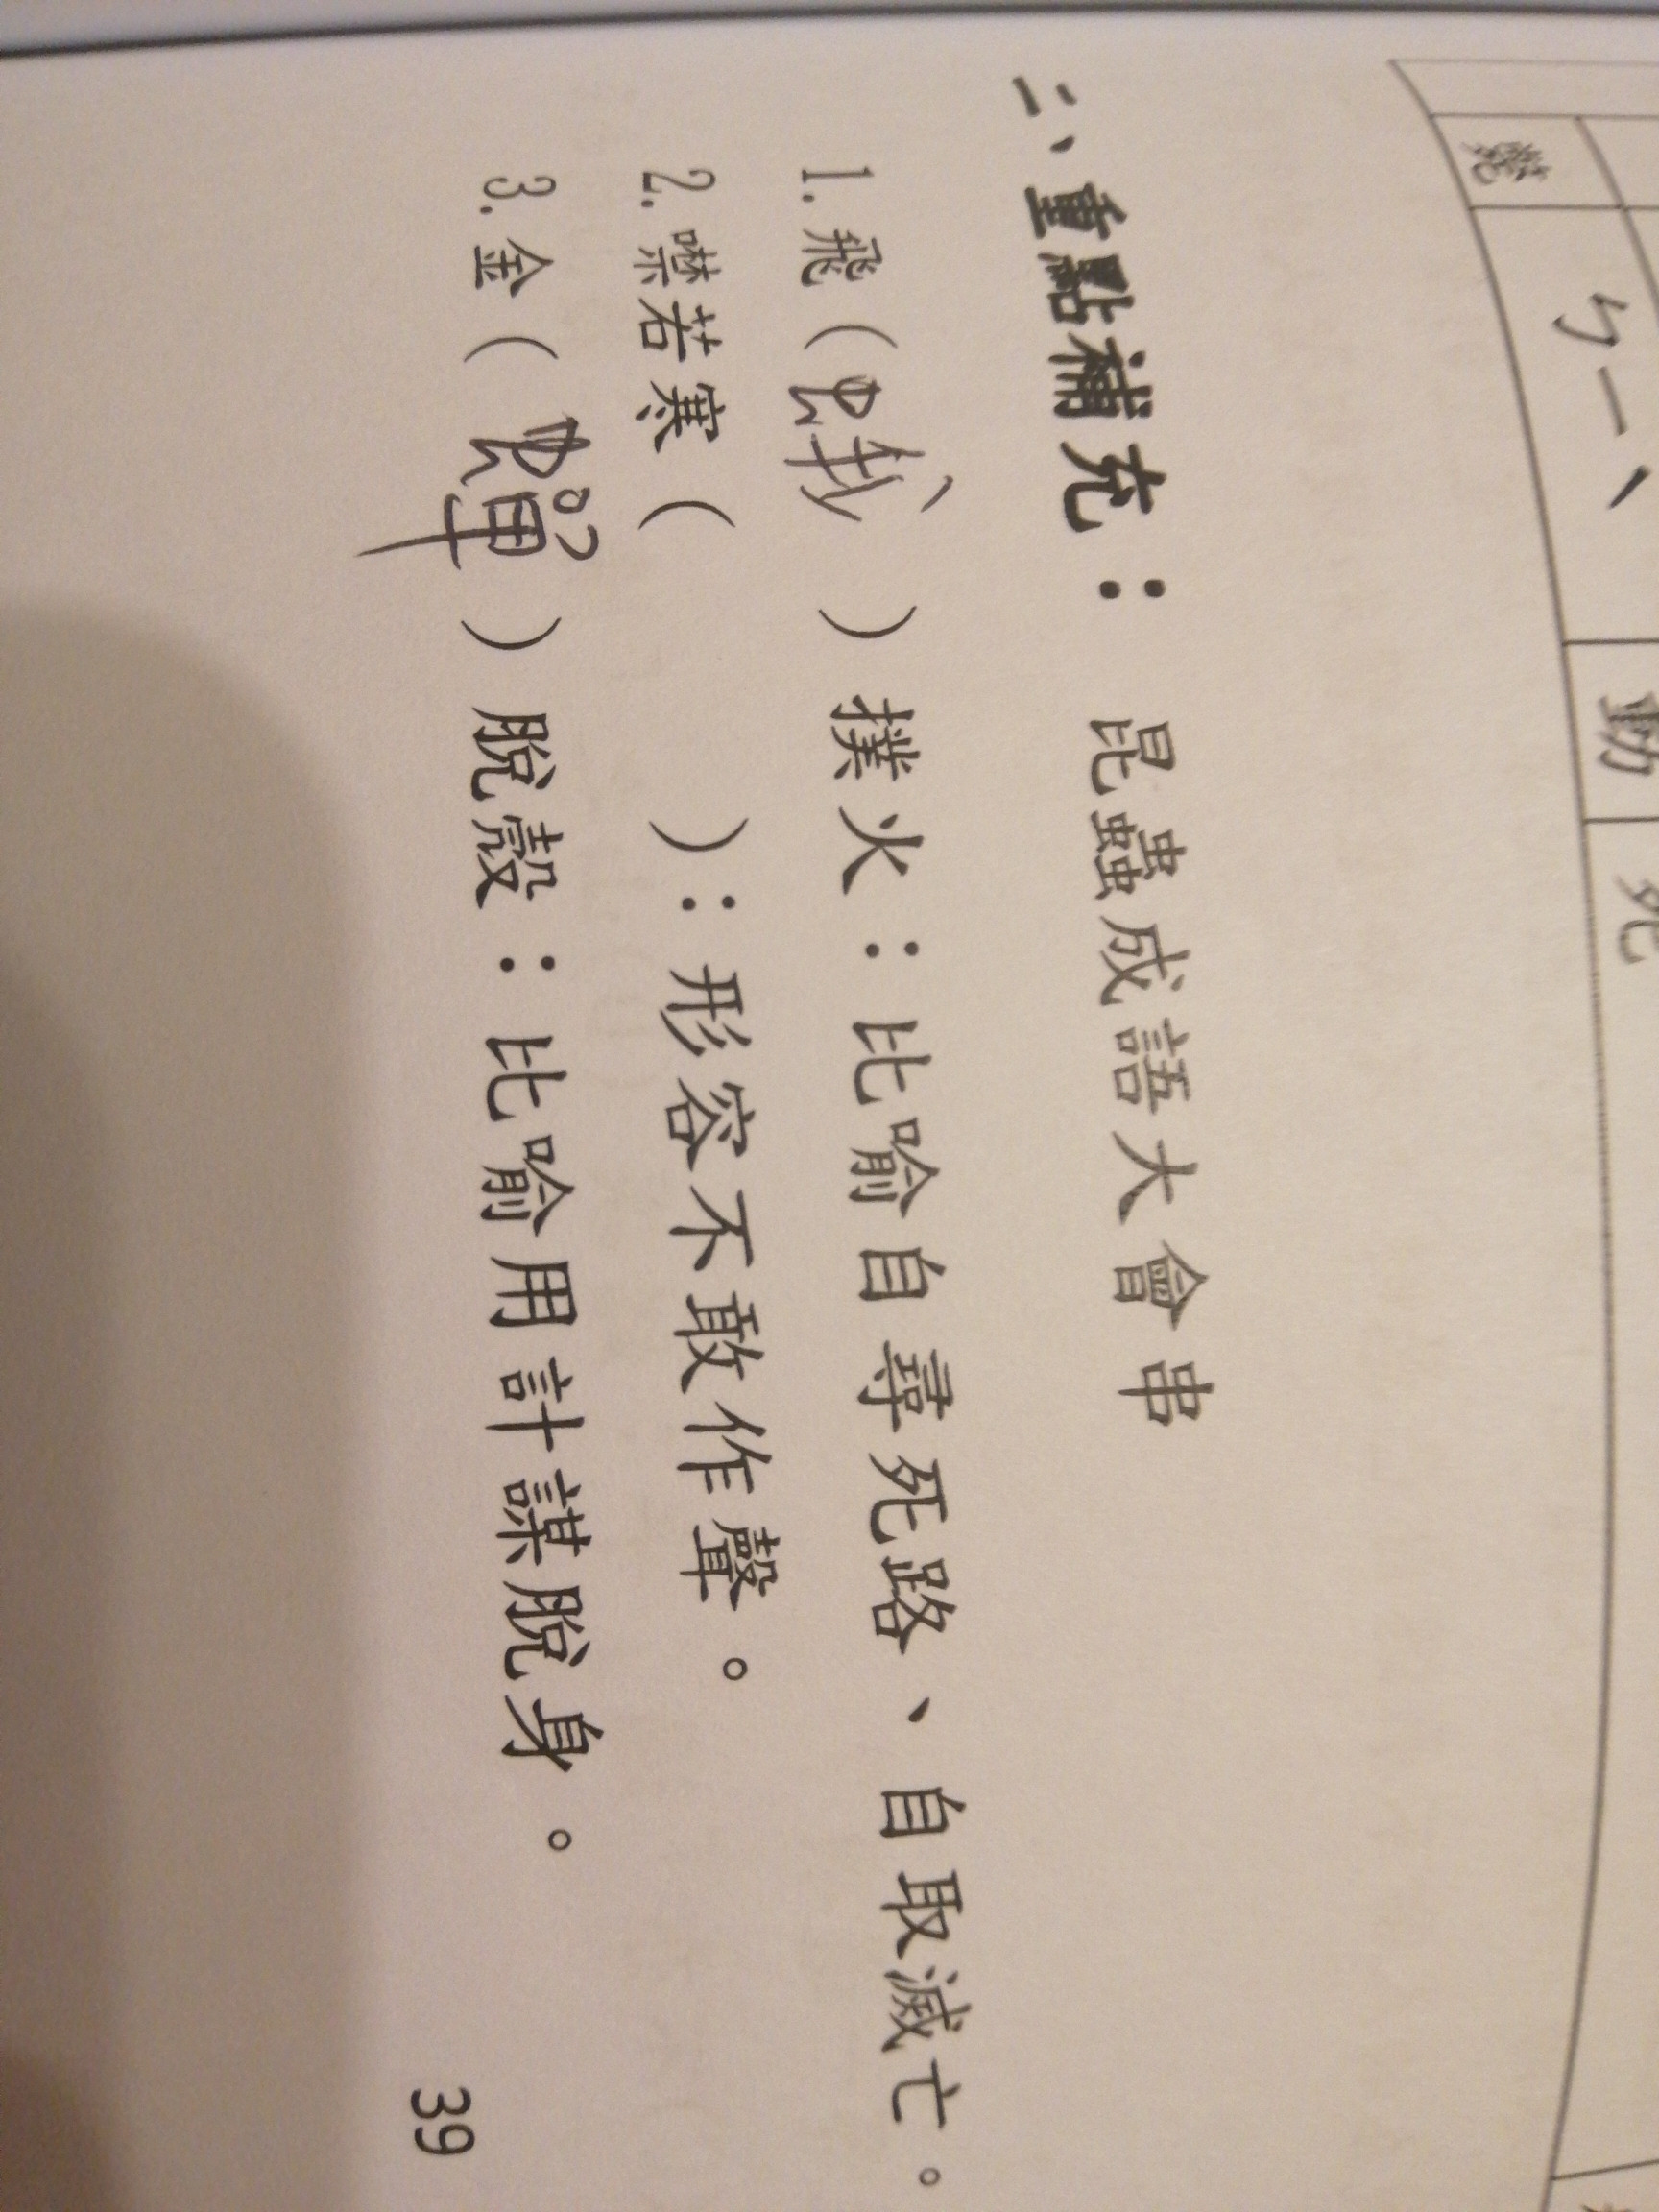 ㄅㄧˋ
動
死
二、重點補充：昆蟲成語大會串
1.飛（蛾）撲火：比喻自尋死路、自取滅亡。
2.噤若寒（　　）：形容不敢作聲。
3.金（蟬）脫殼：比喻用計謀脫身。
39